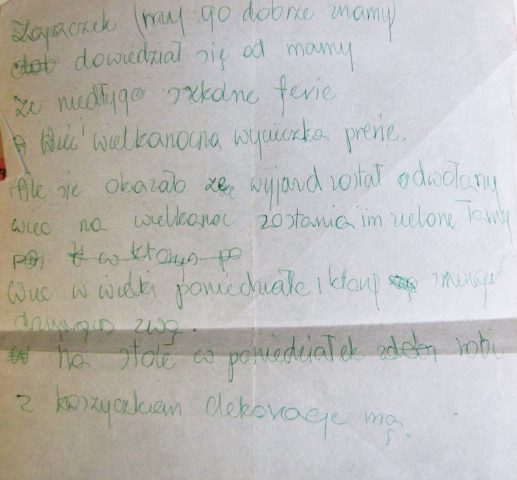 Zajączek (my go dobrze znamy)
dowiedział się od mamy
że niedługo szkolne ferie
Więc wielkanocna wycieczka prerie.
Ale się okazało że wyjazd został odwołany
więc na wielkanoc zostania im zielone łamy
w którego po
Więc w wielki poniedziałek który śmingus
zwą.
na stole co poniedziałek robi
z koszyczkiem dekoracje mą.